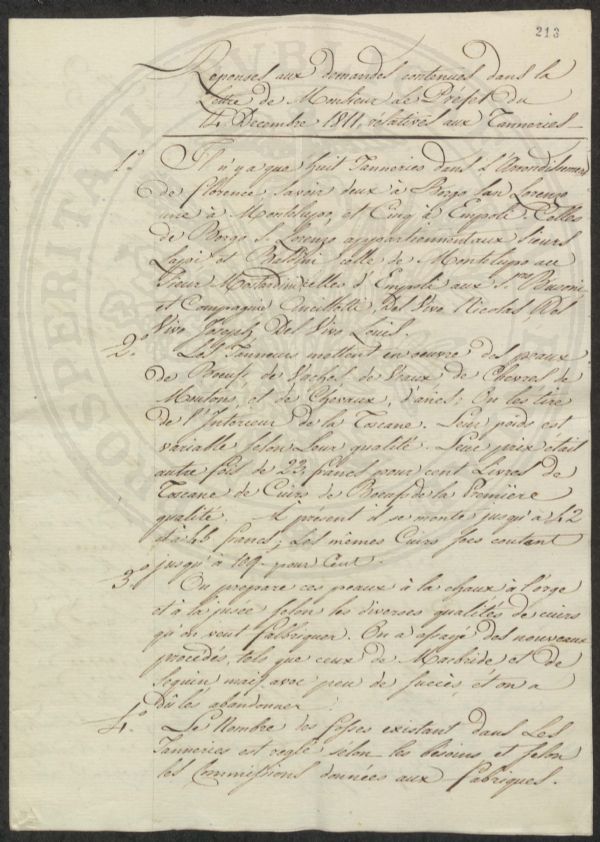 213
Reponses aux demandes contenues dans la
Lettre de Monsieur Le Préfet du
14 Decembre 1811, rélatives aux Tanneries
1.° Il n'y a que huit Tanneries dans l'Arrondissement
de florence Savoir deux à Borgo San Lorenzo
une à Montelupo, et Cinq à Empoli. Celles
de Borgo S. Lorenzo appartiennent aux Sieurs
et Baldini celle de Montelupo au
Sieur d'Empoli aux S.rs Busoni
et Compagnie Del Vivo Nicolas, Del
Vivo Joseph, Del Vivo Louis.
2.° Les Tanneurs mettent en oeuvre des peaux
de Boeufs, de Vaches, de Veaux, de Chevres, de
Moutons, et de Chevaux, d'ânes; On les tire
de l'Intérieur de la Toscane. Leur poids est
variable selon Leur qualité. Leur prix était
autre fois de 22, francs pour cent Livres de
Toscane de Cuirs de Boeufs de la Première
qualité. A présent il se monte jusqu'à 42
et à 45 francs; Les mêmes Cuirs secs coutent
jusqu'à pour Cent.
3.° On prepare ces peaux à la chaux à l'orge
et à la jusée selon les diverses qualités de cuirs
qu'on veut fabriquer. On a essayé des nouveaux
procédés, tels que ceux de Macbride et de
Seguin mais avec peu de succès et on a
dû les abandonner.
4.° Le Nombre des fosses existant dans Les
Tanneries est reglé selon les besoins et selon
les Commissions données aux fabriques.
PROSPERITATI PVBLI